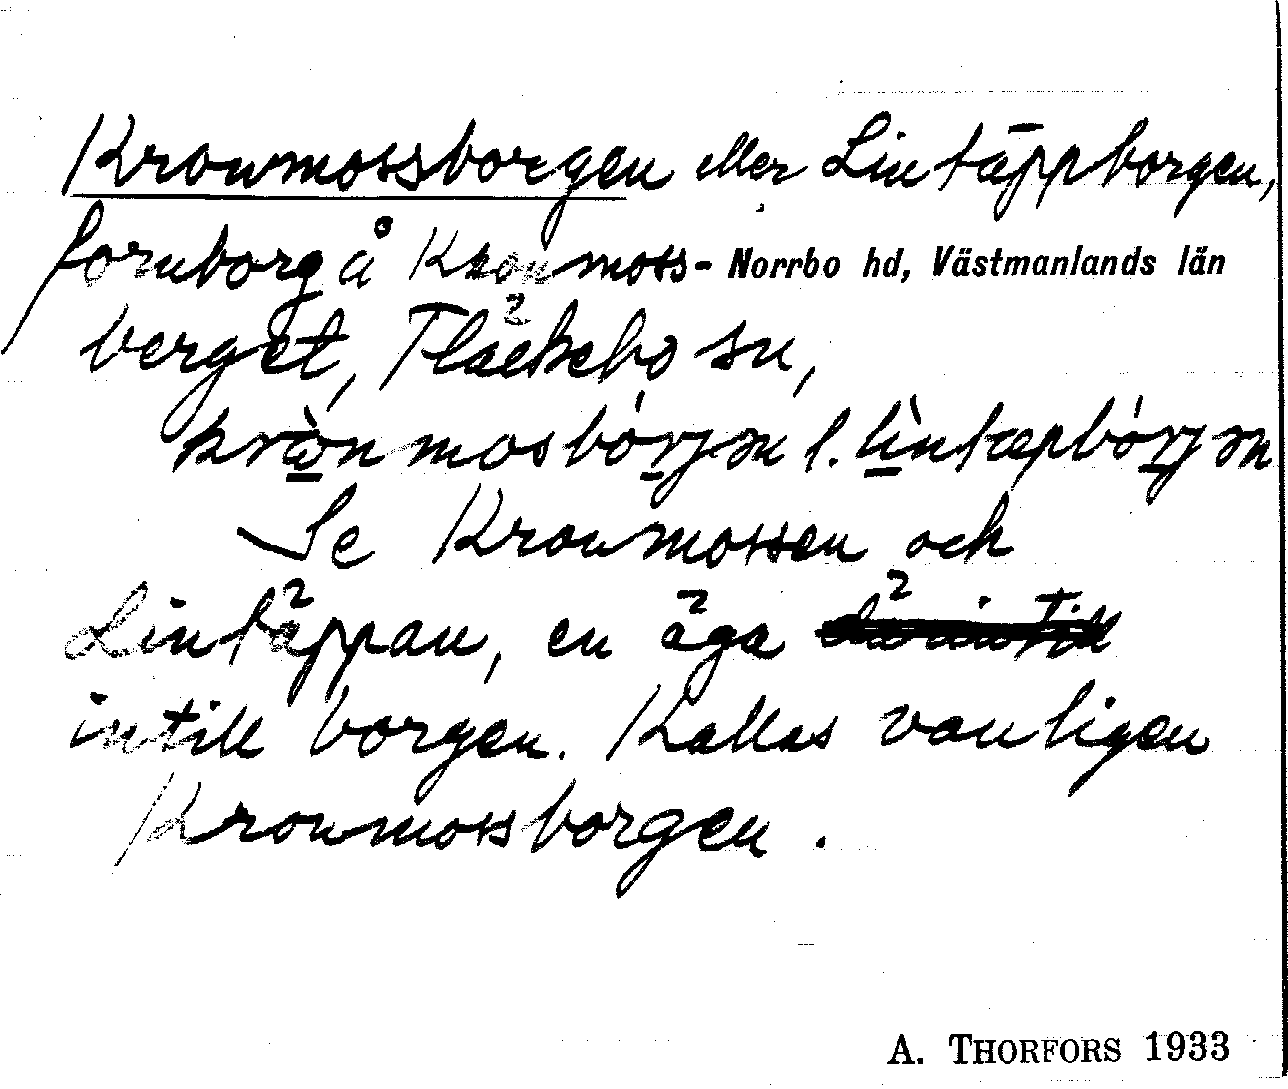 Kronmossborgen eller Lintäppborgen,
fornborg å Kronmoss- Norrbo hd, Västmanlands län
berget, Fläckebo sn,
krò̲nmosbórjən l. lìntæpbórjən
Se Kronmossen och
Lintäppan, en äga
intill borgen. Kallas vanligen
Kronmossborgen.
A. THORFORS 1933